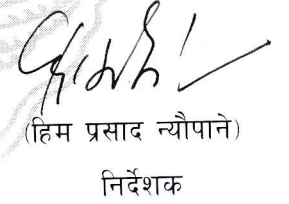 (हिम प्रसाद न्यौपाने)
निर्देशक